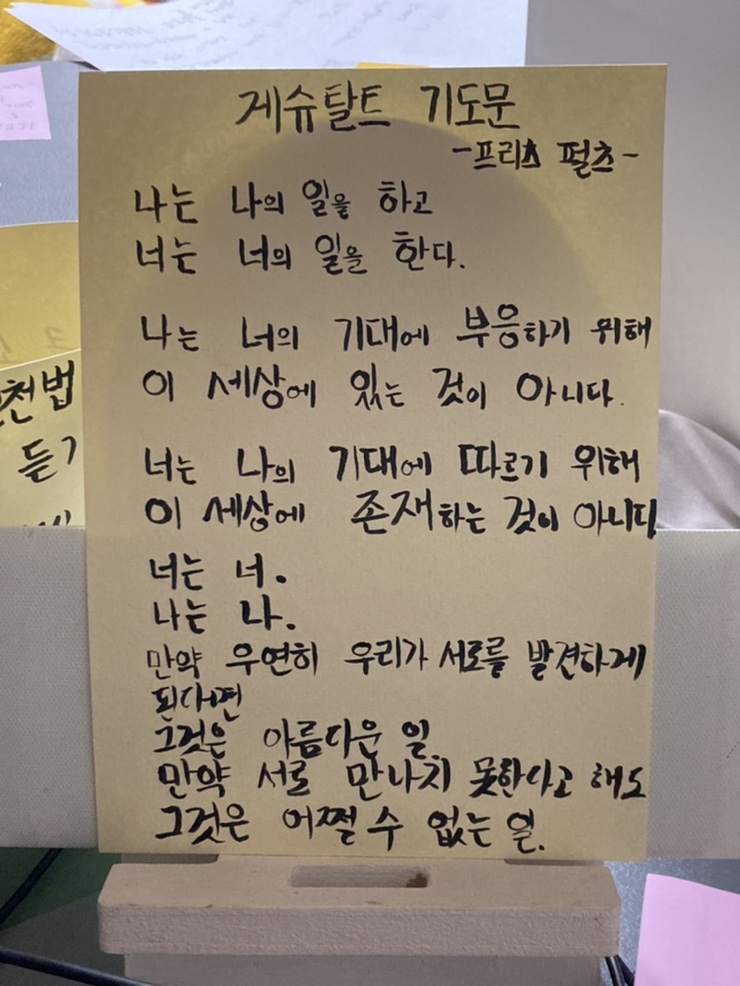 게슈탈트 기도문
-프리츠 펄츠-
나는 나의 일을 하고
너는 너의 일을 한다.
나는 너의 기대에 부응하기 위해
이 세상에 있는 것이 아니다.
너는 나의 기대에 따르기 위해
이 세상에 존재하는 것이 아니다.
너는 너.
나는 나.
만약 우연히 우리가 서로를 발견하게
된다면
그것은 아름다운 일.
만약 서로 만나지 못한다고 해도
그것은 어쩔 수 없는 일.
천법
듣기